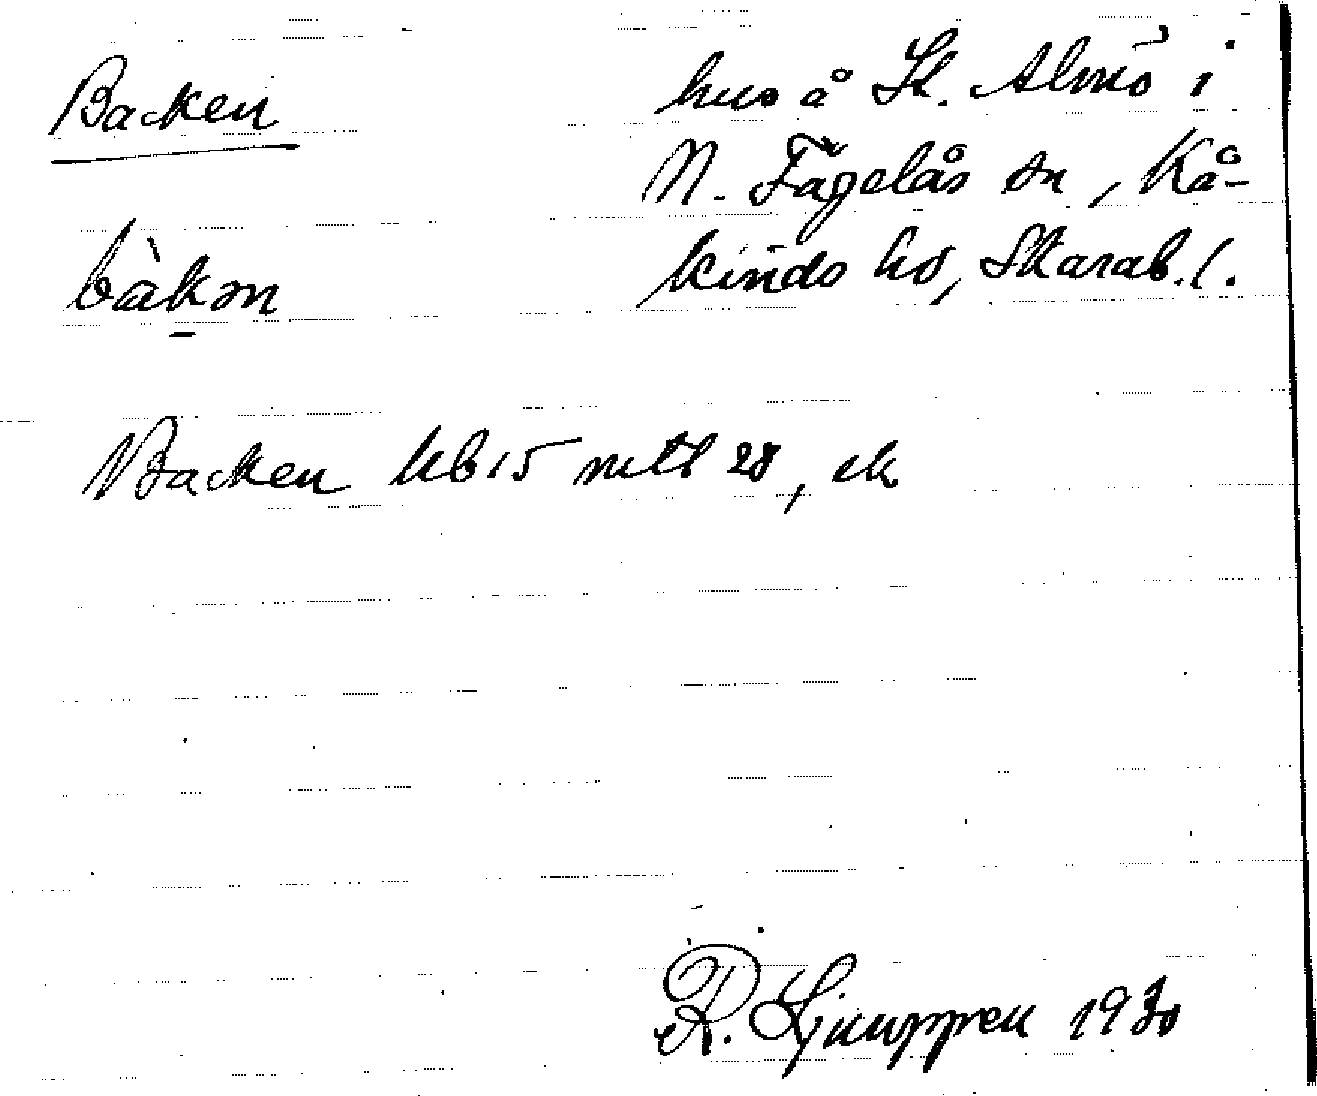 Backen
hus å St. Almö i
N. Fågelås sn, Kå-
kinds hd, Skarab. l.
bàkən
Backen hb 15 mtl 28, ek
R. Ljunggren 1930